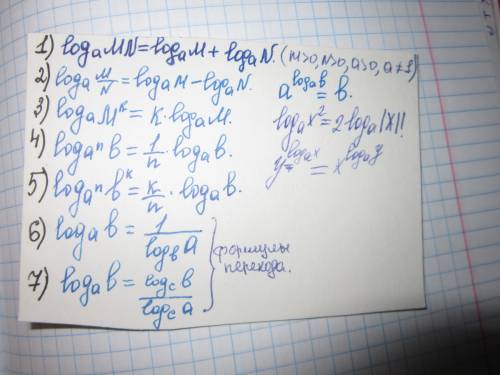 1) log_a MN = log_a M + log_a N. (M>0, N>0, a>0, a≠1)
2) log_a M/N = log_a M - log_a N.
3) log_a M^k = k · log_a M.
4) log_{a^n} b = 1/n · log_a b.
5) log_{a^n} b^k = k/n · log_a b.
6) log_a b = 1/log_b a
7) log_a b = log_c b/log_c a
формулы
перехода.
a^{log_a b} = b.
log_a x^2 = 2 log_a |x|!
y^{log_a x} = x^{log_a y}